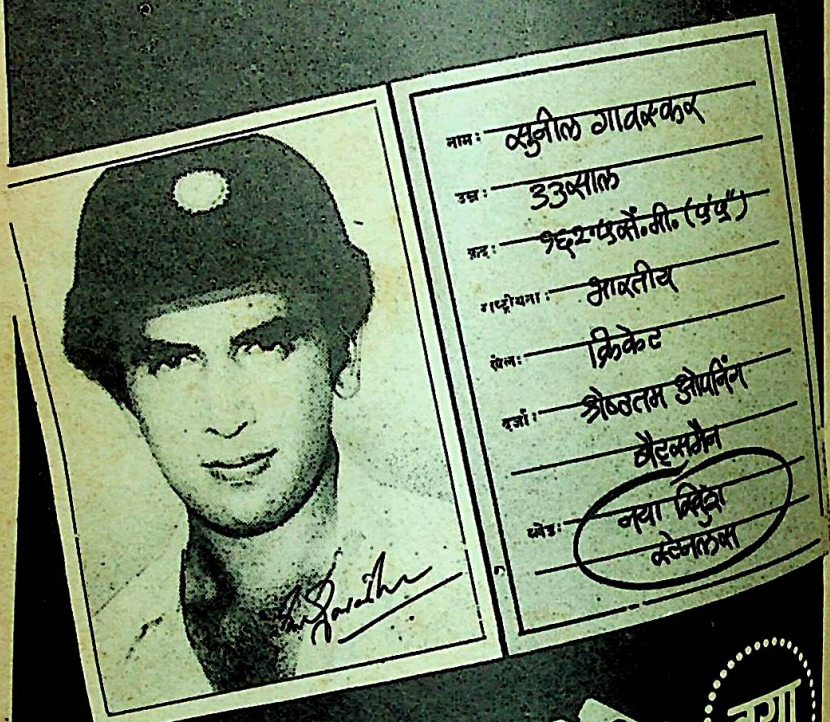 नाम: सुनील गावस्कर
उम्र: ३३ साल
क़द: १६२.५ सें.मी. (५'५")
राष्ट्रीयता: भारतीय
खेल: क्रिकेट
दर्जा: श्रेष्ठतम ओपनिंग
बैट्समैन
ब्लेड: नया स्विश
स्टेनलॅस
नया